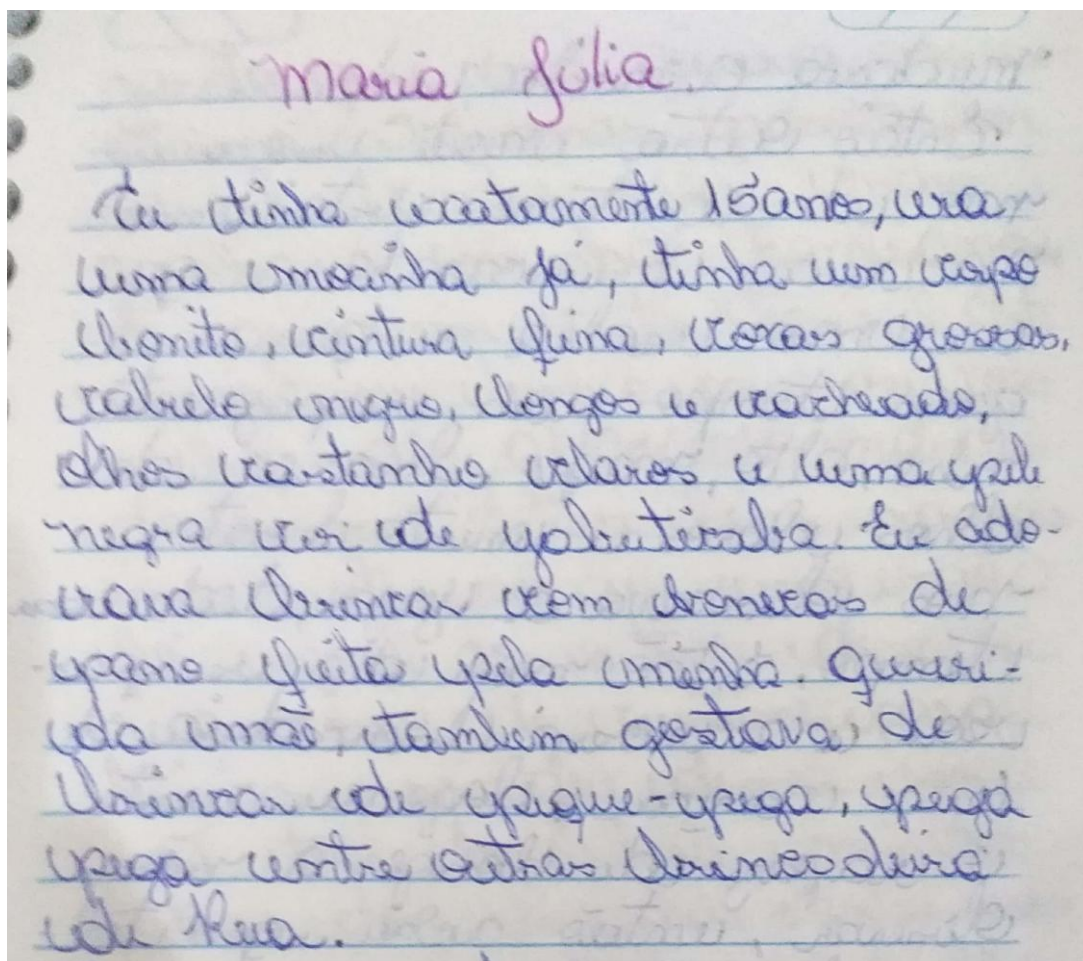 Maria Júlia.
Eu tinha exatamente 15 anos, era
uma mocinha já, tinha um corpo
bonito, cintura fina, coxas grossas,
cabelo negro, longos e cacheado,
olhos castanho claros, e uma pele
negra cor de jabuticaba. Eu ado-
rava brincar com bonecas de
pano feita pela minha queri-
da mãe, também gostava, de
brincar de pique-pega, pega
pega entre outras brincadeira
de Rua.